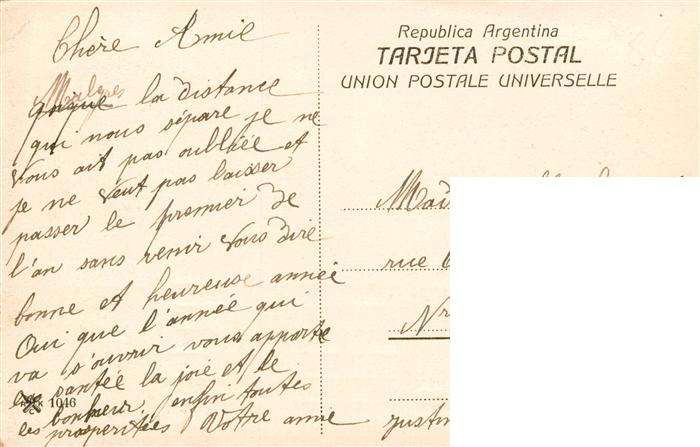 Chère Amie
Malgres
quique la distance
qui nous sépare je ne
vous ait pas oubliée et
je ne veut pas laisser
passer le premier de
l'an sans venir vous dire
bonne et heureuse année
Oui que l'année qui
va s'ouvrir vous apporte
santée la joie et le
bonheur enfin toutes
les prosperitées Votre amie justin
1046
Republica Argentina
TARJETA POSTAL
UNION POSTALE UNIVERSELLE
Mad
rue
Nr